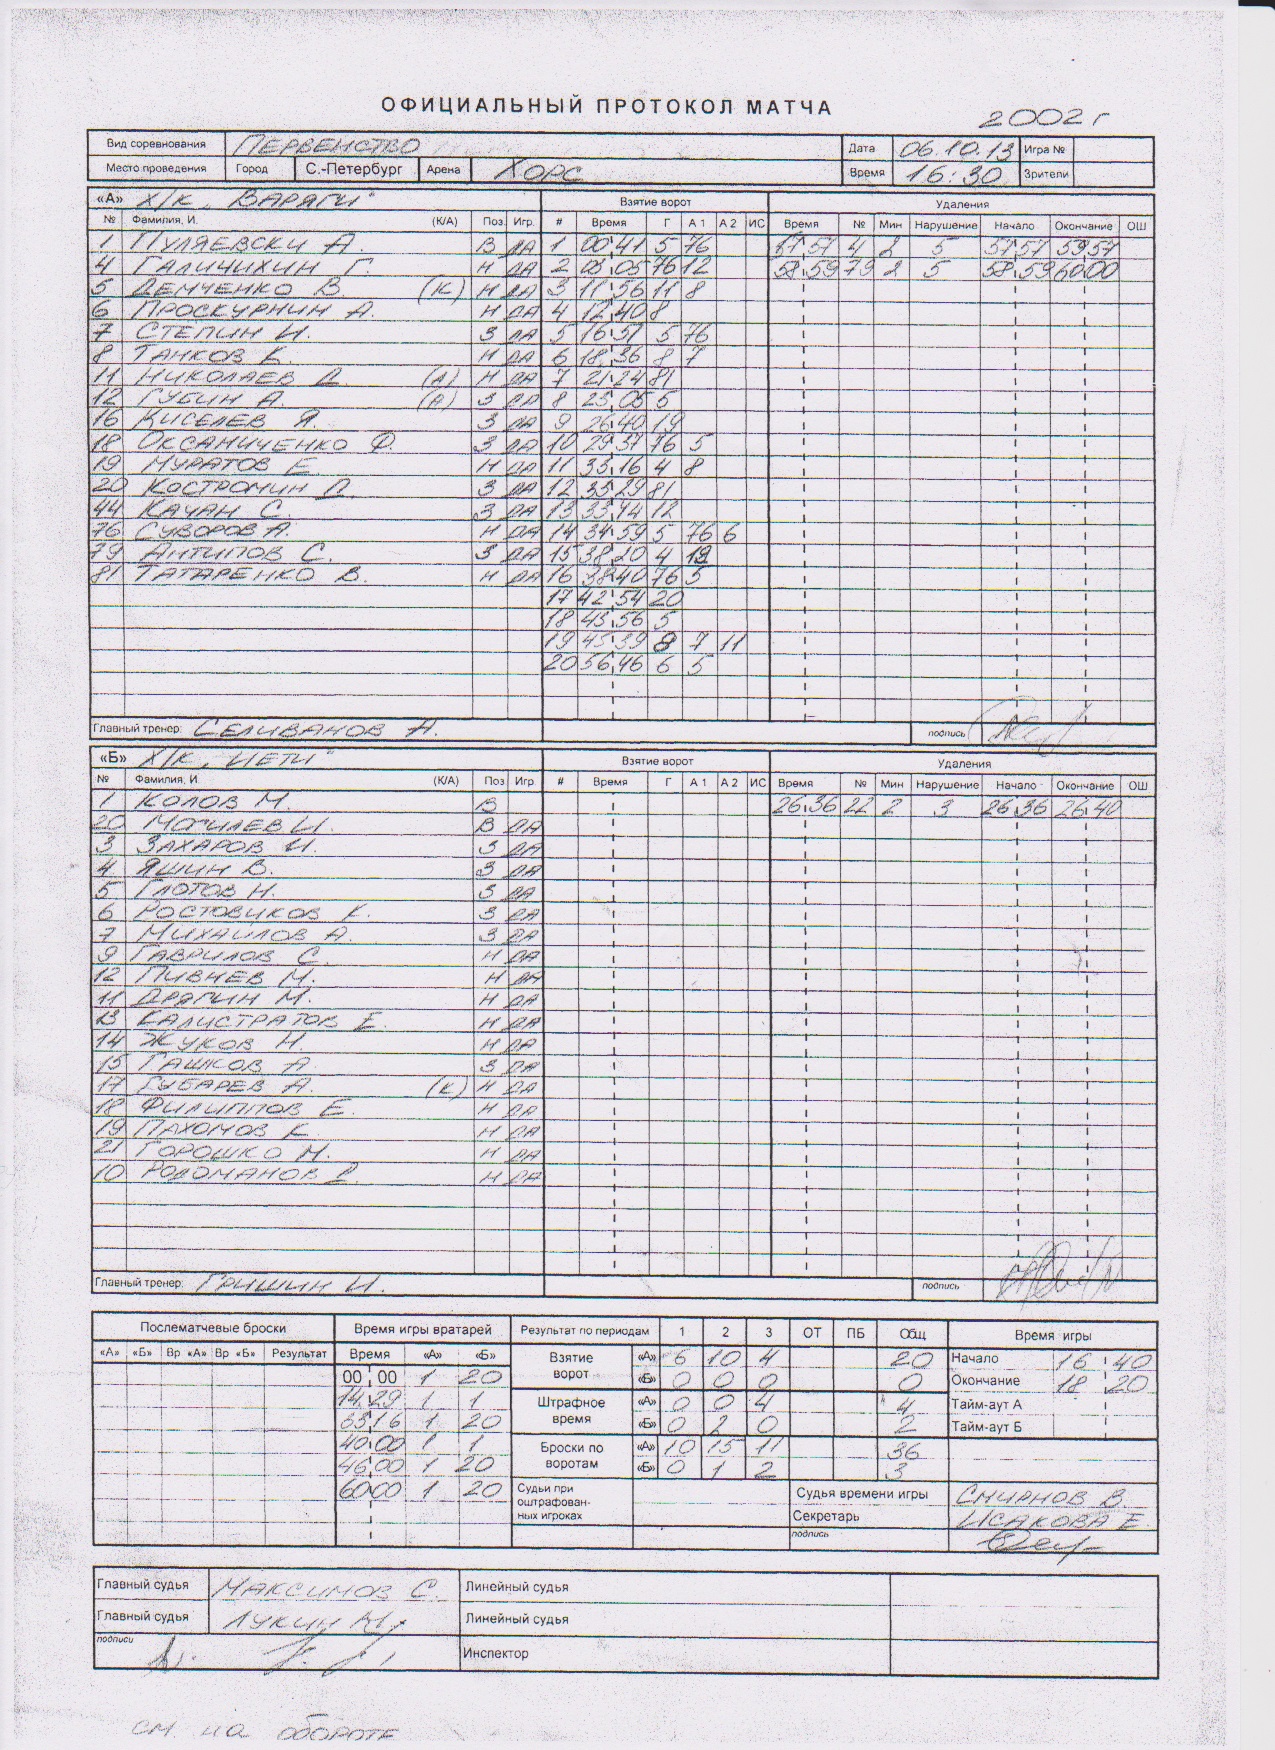 ОФИЦИАЛЬНЫЙ ПРОТОКОЛ МАТЧА
2002 г
Вид соревнования ПЕРВЕНСТВО Дата 06.10.13 Игра №
Место проведения Город С.-Петербург Арена ХОРС Время 16:30 Зрители
«А» Х/К „ВАРЯГИ" Взятие ворот Удаления
№ Фамилия, И. (К/А) Поз. Игр. # Время Г А 1 А 2 ИС Время № Мин Нарушение Начало Окончание ОШ
1 ПУЛЯЕВСКИ А. В ДА 1 00 41 5 76 57 57 4 2 5 57 57 59 57
4 ГАЛИЧИХИН Г. Н ДА 2 05 05 76 12 58 59 79 2 5 58 59 60 00
5 ДЕМЧЕНКО В. (К) Н ДА 3 11 56 11 8
6 ПРОСКУРНИН А. Н ДА 4 12 40 8
7 СТЕПИН И. З ДА 5 16 51 5 76
8 ТАНКОВ К. Н ДА 6 18 36 8 7
11 НИКОЛАЕВ Д. (А) Н ДА 7 21 24 81
12 ГУБИН А. (А) З ДА 8 23 05 5
16 КИСЕЛЕВ Я. З ДА 9 26 40 19
18 ОКСАНИЧЕНКО Ф. З ДА 10 29 37 76 5
19 МУРАТОВ Е Н ДА 11 33 16 4 8
20 КОСТРОМИН Д. З ДА 12 33 29 81
44 КАЧАН С. З ДА 13 33 44 12
76 СУВОРОВ А. Н ДА 14 34 59 5 76 6
79 АНТИПОВ С. З ДА 15 38 20 4 19
81 ТАТАРЕНКО В. Н ДА 16 38 40 76 5
17 42 54 20
18 43 56 5
19 45 39 8 7 11
20 56 46 6 5
Главный тренер: СЕЛИВАНОВ А. подпись
«Б» Х/К „ЙЕТИ" Взятие ворот Удаления
№ Фамилия, И. (К/А) Поз Игр. # Время Г А 1 А 2 ИС Время № Мин Нарушение Начало Окончание ОШ
1 КОЛОВ М. В 26 36 22 2 3 26 36 26 40
20 МОГИЛЕВ И. В ДА
3 ЗАХАРОВ И. З ДА
4 ЯШИН В. З ДА
5 ГЛОТОВ Н. З ДА
6 РОСТОВИКОВ К. З ДА
7 МИХАИЛОВ А. З ДА
9 ГАВРИЛОВ С. Н ДА
12 ПИВНЕВ М. Н ДА
11 ДРЯГИН М. Н ДА
13 КАЛИСТРАТОВ Е. Н ДА
14 ЖУКОВ Н. Н ДА
15 ГАШКОВ А З ДА
17 ГУБАРЕВ А. (К) Н ДА
18 ФИЛИППОВ Е. Н ДА
19 ПАХОМОВ К Н ДА
21 ГОРОШКО М. Н ДА
10 РОДОМАНОВ Д. Н ДА
Главный тренер: ГРИШИН И. подпись
Послематчевые броски Время игры вратарей Результат по периодам 1 2 3 ОТ ПБ Общ Время игры
«А» «Б» Вр «А» Вр «Б» Результат Время «А» «Б» Взятие ворот «А» 6 10 4 20 Начало 16 40
00 00 1 20 «Б» 0 0 0 0 Окончание 18 20
14 29 1 1 Штрафное время «А» 0 0 4 4 Тайм-аут А
1 20 «Б» 0 2 0 2 Тайм-аут Б
40 00 1 1 Броски по воротам «А» 10 15 11 36
46 00 1 20 «Б» 0 1 2 3
60 00 1 20 Судьи при оштрафован- ных игроках Судья времени игры СМИРНОВ В.
Секретарь ИСАКОВА Е.
подпись
Главный судья МАКСИМОВ С. Линейный судья
Главный судья ЛУКИН Линейный судья
подписи Инспектор
см. на обороте